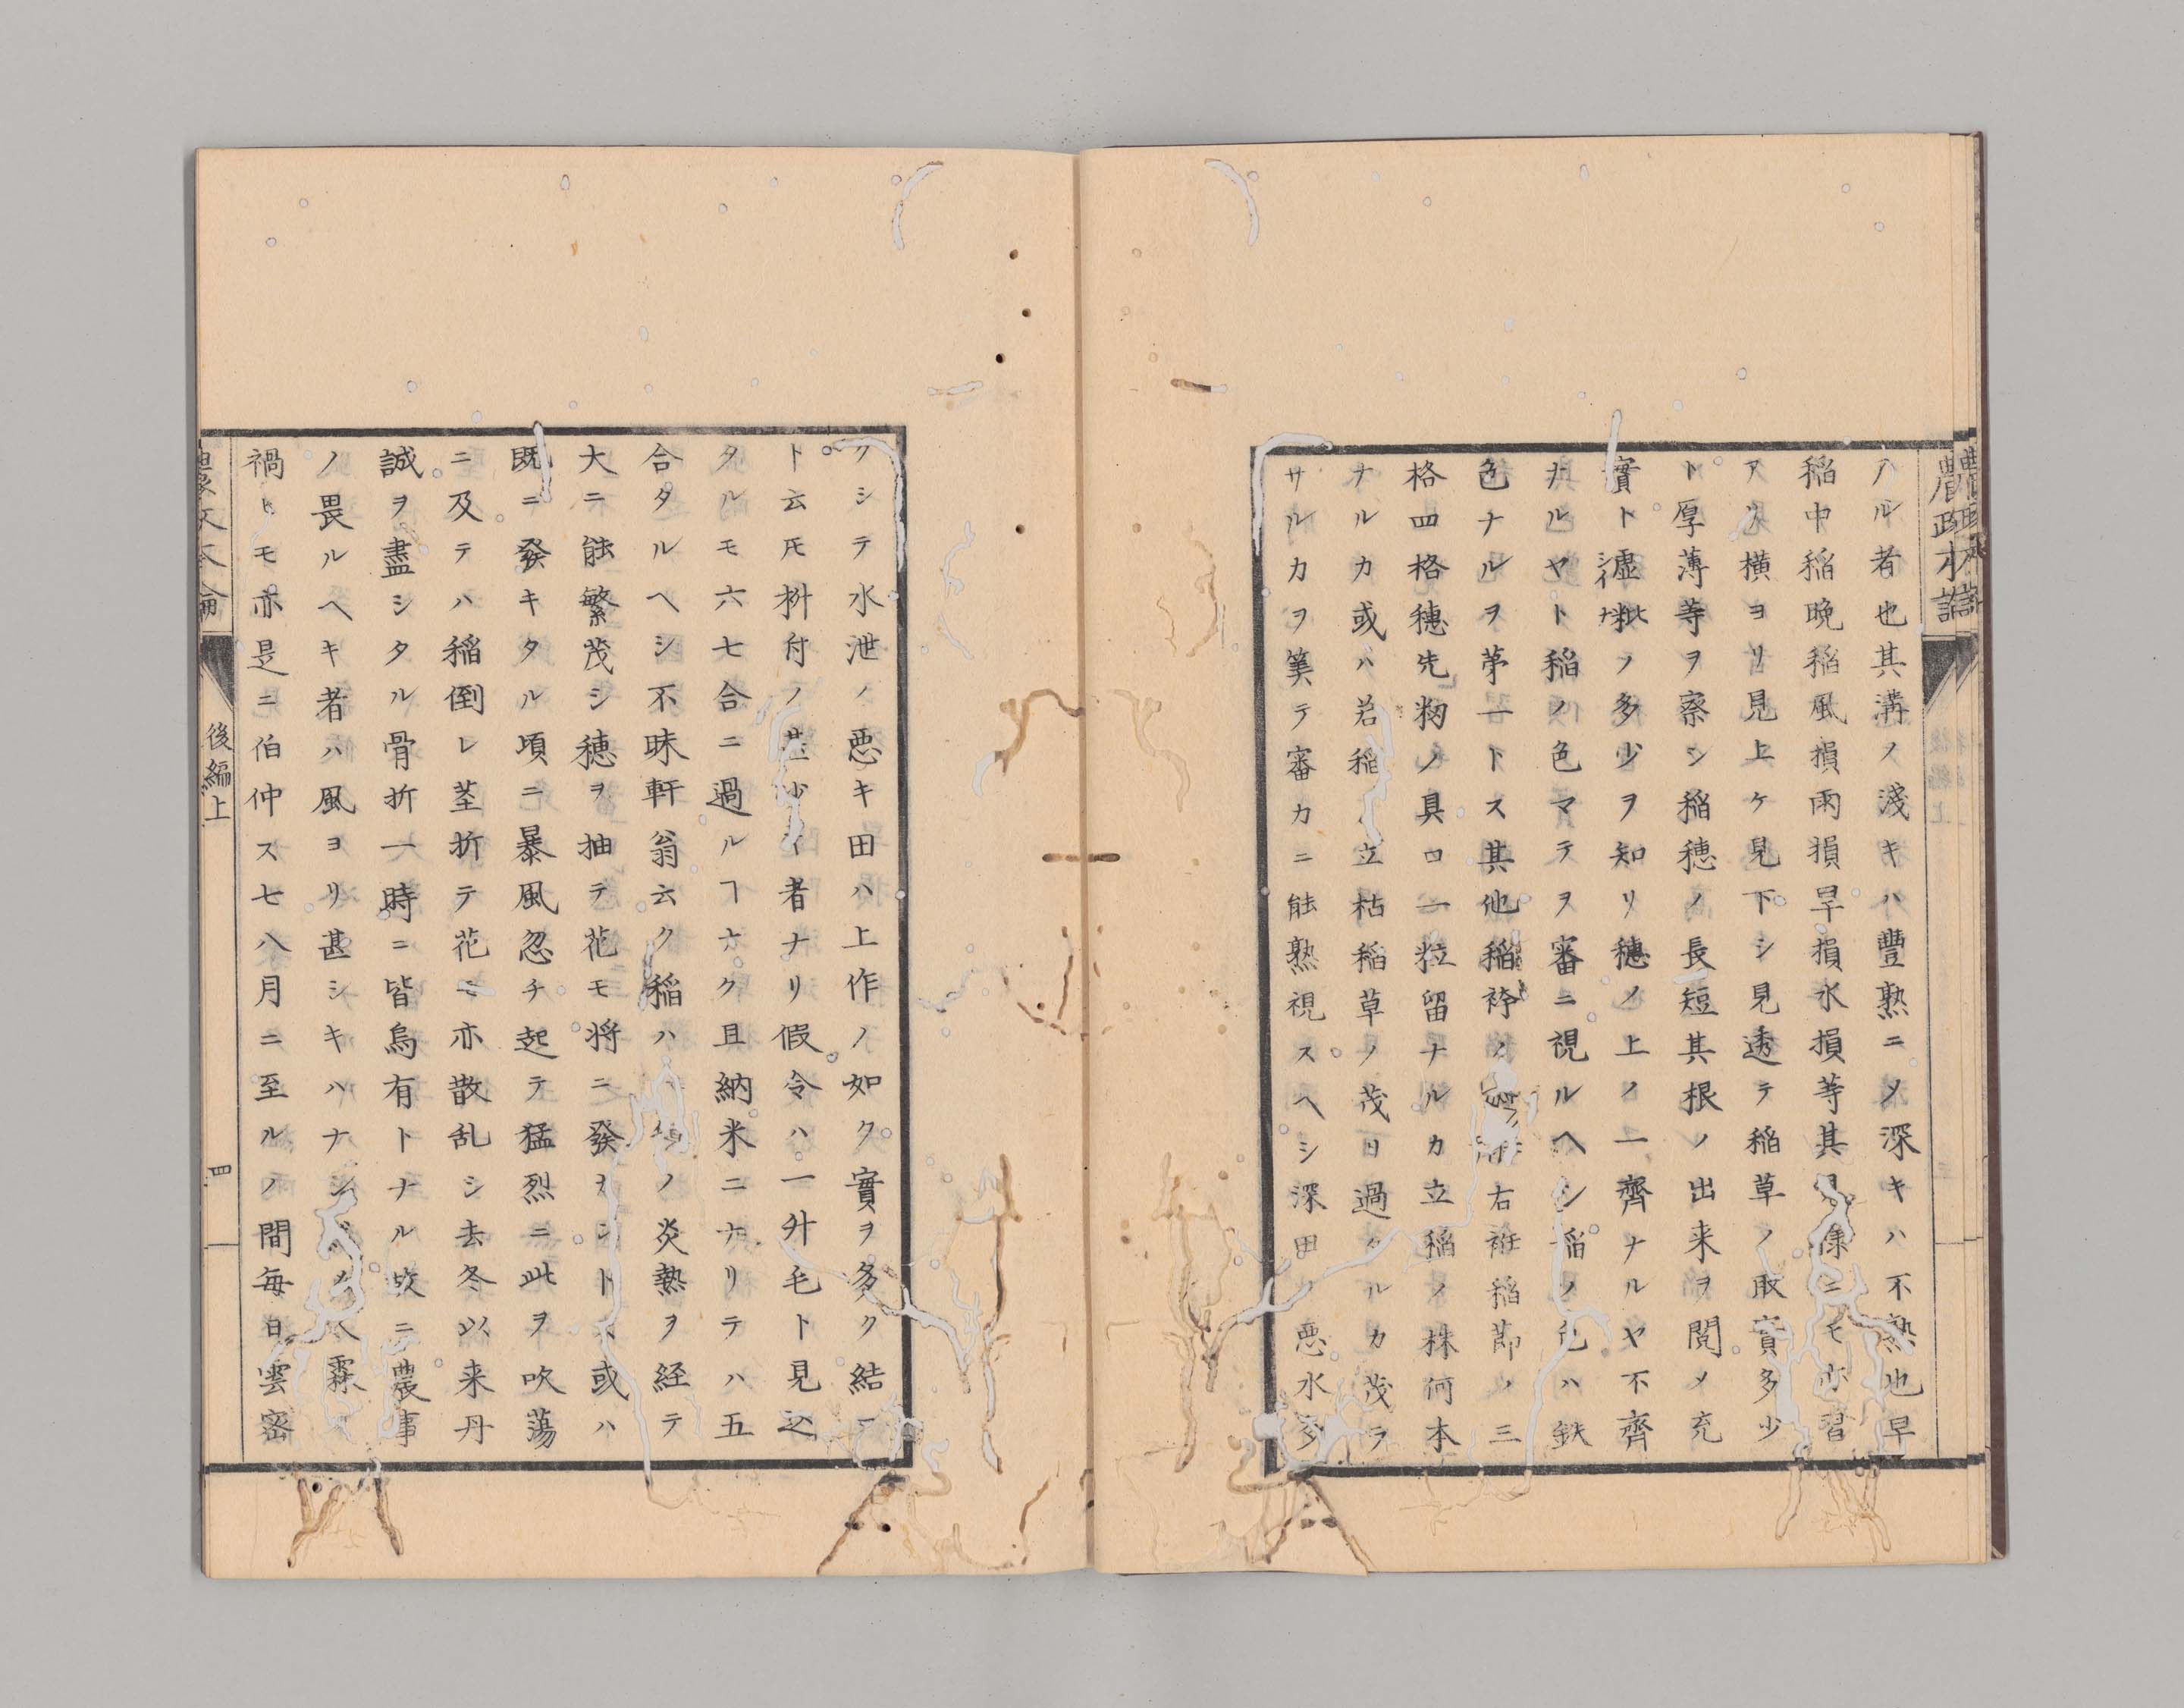 農政本論
アル者也其溝ノ淺キハ豐熟ニメ深キハ不熟也早
稲中稲晩稲風損雨損旱損水損等其見様ニモ亦習
アリ横ヨリ見上ケ見下シ見透テ稲草ノ取實多少
ト厚薄等ヲ察シ稲穂ノ長短其根ノ出来ヲ閲メ充
實ト虚粃ノ多少ヲ知リ穂ノ上ノ一齊ナルヤ不齊
シイナ
ナルヤト稲ノ色マテヲ審ニ視ルヘシ稲ノ色ハ鉄
色ナルヲ第一トス其他稲袴ノ右袵稲節ノ三
格四格穂先籾ノ具口一粒留ナルカ立稲ノ株何本
ナルカ或ハ若稲立枯稲草ノ茂リ過タルカ茂ラ
サルカヲ筭テ審カニ能熟視スヘシ深田ノ悪水多
クシテ水泄ノ悪キ田ハ上作ノ如ク實ヲ多ク結フ
ト云𪜈枡付ノ甚少キ者ナリ假令ハ一升毛ト見込
タルモ六七合ニ過ルヿナク且納米ニナリテハ五
合タルヘシ不昧軒翁云ク稲ハノ炎熱ヲ経テ
大ニ能繁茂シ穂ヲ抽テ花モ将ニ發ヲントス或ハ
既ニ發キタル頃ニ暴風忽チ起テ猛烈ニ此ヲ吹蕩
ニ及テハ稲倒レ莖折テ花ニ亦散乱シ去冬以来丹
誠ヲ盡シタル骨折一時ニ皆烏有トナル故ニ農事
ノ畏ルヘキ者ハ風ヨリ甚シキハナシ霖
禍トモ亦是ニ伯仲ス七八月ニ至ルノ間毎日雲密
後編上
四